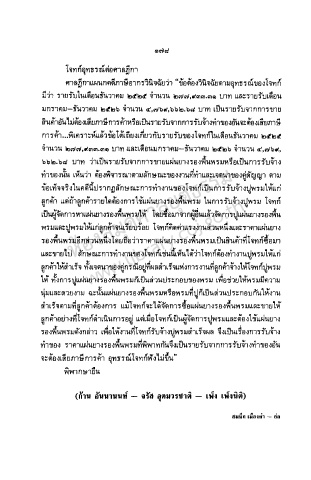 ๑๗๘
โจทก์อุทธรณ์ต่อศาลฎีกา
ศาลฎีกาแผนกคดีภาษีอากรวินิจฉัยว่า "ข้อต้องวินิจฉัยตามอุทธรณ์ของโจทก์
มีว่า รายรับในเดือนธันวาคม ๒๕๒๕ จำนวน ๒๗๗,๙๓๓.๓๑ บาท และรายรับเดือน
มกราคม-ธันวาคม ๒๕๒๖ จำนวน ๔,๗๖๙,๖๖๒.๖๘ บาท เป็นรายรับจากการขาย
สินค้าอันไม่ต้องเสียภาษีการค้าหรือเป็นรายรับจากการรับจ้างทำของอันจะต้องเสียภาษี
การค้า...พิเคราะห์แล้วข้อโต้เถียงเกี่ยวกับรายรับของโจทก์ในเดือนธันวาคม ๒๕๒๕
จำนวน ๒๗๗,๙๓๓.๓๑ บาท และเดือนมกราคม-ธันวาคม ๒๕๒๖ จำนวน ๔,๗๖๙,
๖๖๒.๖๘ บาท ว่าเป็นรายรับจากการขายแผ่นยางรองพื้นพรมหรือเป็นการรับจ้าง
ทำของนั้น เห็นว่า ต้องพิจารณาตามลักษณะของงานที่ทำและเจตนาของคู่สัญญา ตาม
ข้อเท็จจริงในคดีนี้ปรากฏลักษณะการทำงานของโจทก์เป็นการรับจ้างปูพรมให้แก่
ลูกค้า แต่ถ้าลูกค้ารายใดต้องการใช้แผ่นยางรองพื้นพรม ในการรับจ้างปูพรม โจทก์
เป็นผู้จัดการหาแผ่นยางรองพื้นพรมให้ โดยซื้อมาจากผู้อื่นแล้วจัดการปูแผ่นยางรองพื้น
พรมและปูพรมให้แก่ลูกค้าจนเรียบร้อย โจทก์คิดค่าแรงงานส่วนหนึ่งและราคาแผ่นยาง
รองพื้นพรมอีกส่วนหนึ่งโดยถือว่าราคาแผ่นยางรองพื้นพรมเป็นสินค้าที่โจทก์ซื้อมา
และขายไป ลักษณะการทำงานของโจทก์เช่นนี้เห็นได้ว่าโจทก์ต้องทำงานปูพรมให้แก่
ลูกค้าให้สำเร็จ ทั้งเจตนาของคู่กรณีอยู่ที่ผลสำเร็จแห่งการงานที่ลูกค้าจ้างให้โจทก์ปูพรม
ให้ ทั้งการปูแผ่นยางรองพื้นพรมก็เป็นส่วนประกอบของพรม เพื่อช่วยให้พรมมีความ
นุ่มและสวยงาม ฉะนั้นแผ่นยางรองพื้นพรมหรือพรมที่ปูก็เป็นส่วนประกอบกันให้งาน
สำเร็จตามที่ลูกค้าต้องการ แม้โจทก์จะได้จัดการซื้อแผ่นยางรองพื้นพรมและขายให้
ลูกค้าอย่างที่โจทก์ดำเนินการอยู่ แต่เมื่อโจทก์เป็นผู้จัดการปูพรมและต้องใช้แผ่นยาง
รองพื้นพรมดังกล่าว เพื่อให้งานที่โจทก์รับจ้างปูพรมสำเร็จผล จึงเป็นเรื่องการรับจ้าง
ทำของ ราคาแผ่นยางรองพื้นพรมที่พิพาทกันจึงเป็นรายรับจากการรับจ้างทำของอัน
จะต้องเสียภาษีการค้า อุทธรณ์โจทก์ฟังไม่ขึ้น"
พิพากษายืน
(ก้าน อันนานนท์ - จรัส อุดมวรชาติ - เพ็ง เพ็งนิติ)
สมนึก เมืองคำ - ย่อ